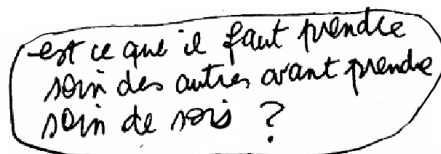 est ce que il faut prendre
soin des autres avant prendre
soin de sois ?